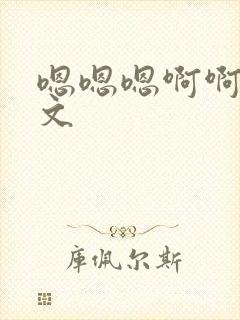 嗯嗯嗯啊啊
文
库佩尔斯